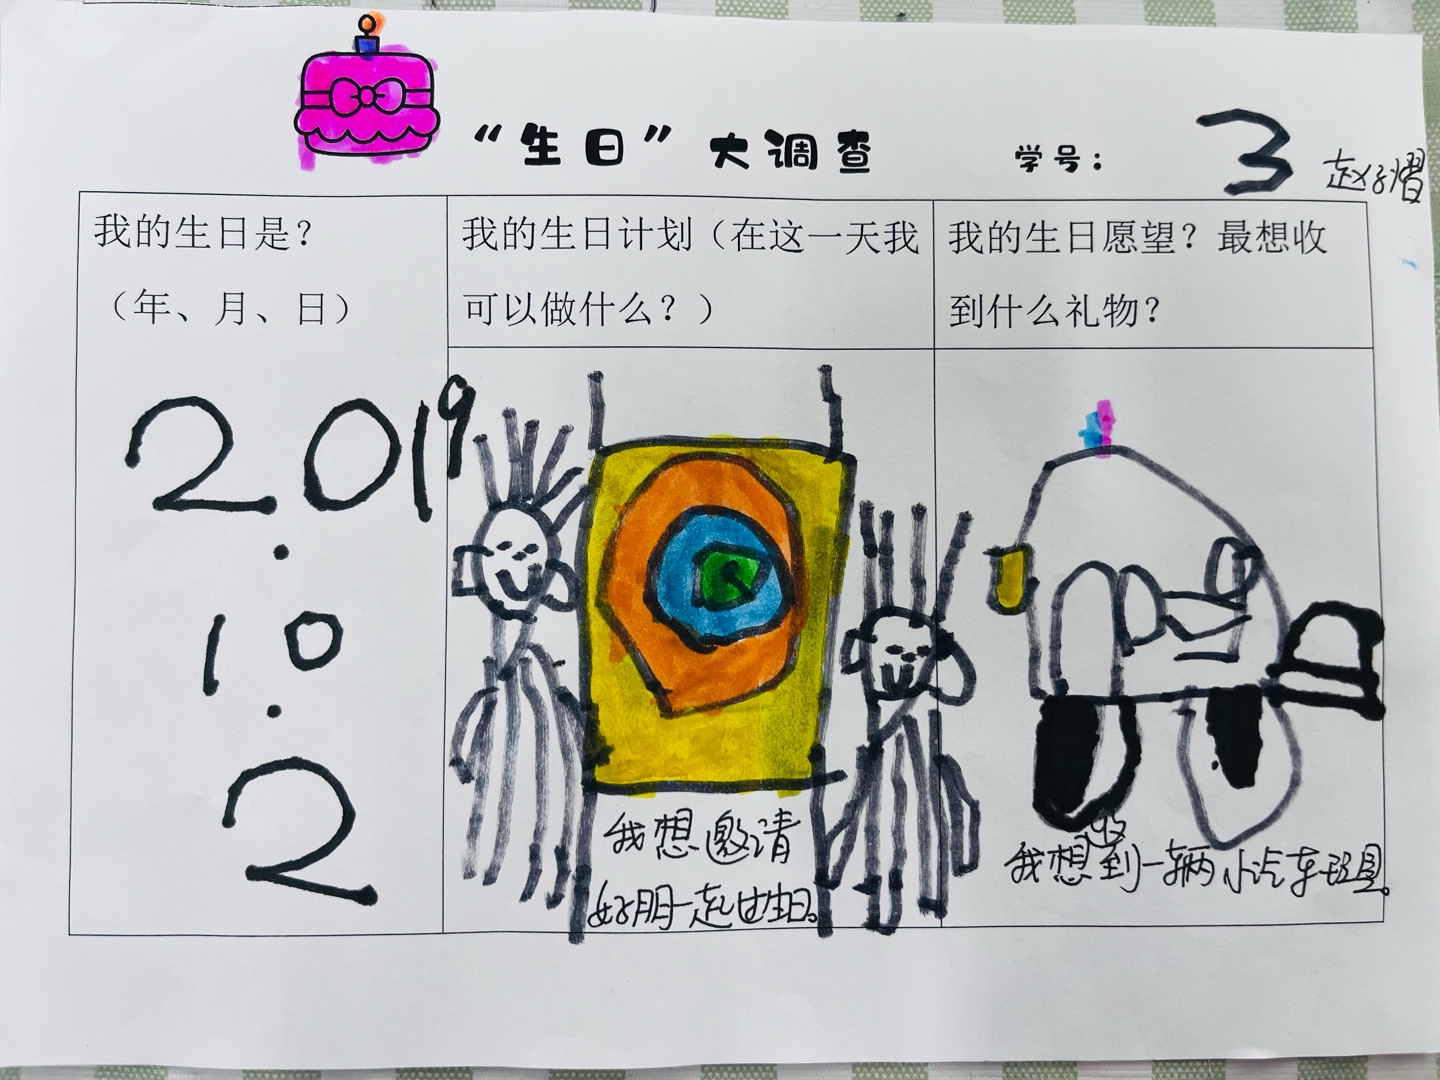 “生日”大调查
学号：3 赵子熠
我的生日是？
（年、月、日）
2019
.
10
.
2
我的生日计划（在这一天我
可以做什么？）
我想邀请
好朋一起过生日。
我的生日愿望？最想收
到什么礼物？
我想收到一辆小汽车玩具。